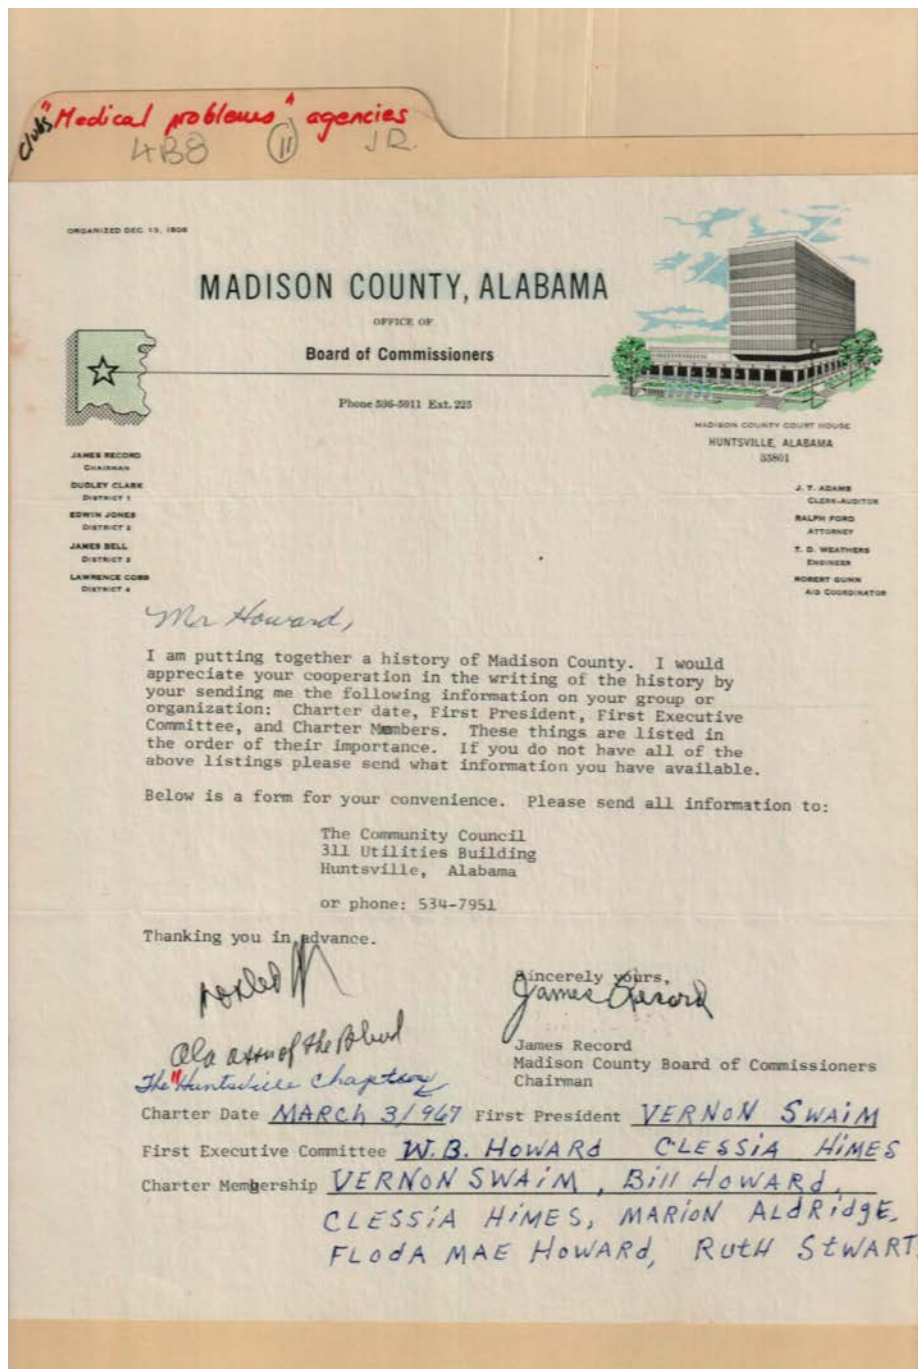 clubs "Medical problems" agencies
4B8 (11) JR.
ORGANIZED DEC. 13, 1808
MADISON COUNTY, ALABAMA
OFFICE OF
Board of Commissioners
Phone 536-5911 Ext. 225
MADISON COUNTY COURT HOUSE
HUNTSVILLE, ALABAMA
35801
JAMES RECORD
CHAIRMAN
DUDLEY CLARK
DISTRICT 1
EDWIN JONES
DISTRICT 2
JAMES BELL
DISTRICT 3
LAWRENCE COBB
DISTRICT 4
J. T. ADAMS
CLERK-AUDITOR
RALPH FORD
ATTORNEY
T. D. WEATHERS
ENGINEER
ROBERT GUNN
AID COORDINATOR
Mr Howard,
I am putting together a history of Madison County. I would
appreciate your cooperation in the writing of the history by
your sending me the following information on your group or
organization: Charter date, First President, First Executive
Committee, and Charter Members. These things are listed in
the order of their importance. If you do not have all of the
above listings please send what information you have available.
Below is a form for your convenience. Please send all information to:
The Community Council
311 Utilities Building
Huntsville, Alabama
or phone: 534-7951
Thanking you in advance.
Sincerely yours,
James Record
James Record
Madison County Board of Commissioners
Chairman
Ala assn of the Blind
The "Huntsville Chapter
Charter Date MARCH 3/967 First President VERNON SWAIM
First Executive Committee W.B. HOWARD CLESSIA HIMES
Charter Membership VERNON SWAIM, Bill HOWARD,
CLESSIA HIMES, MARION ALDRIDGE,
FLODA MAE HOWARD, RUTH STWART,